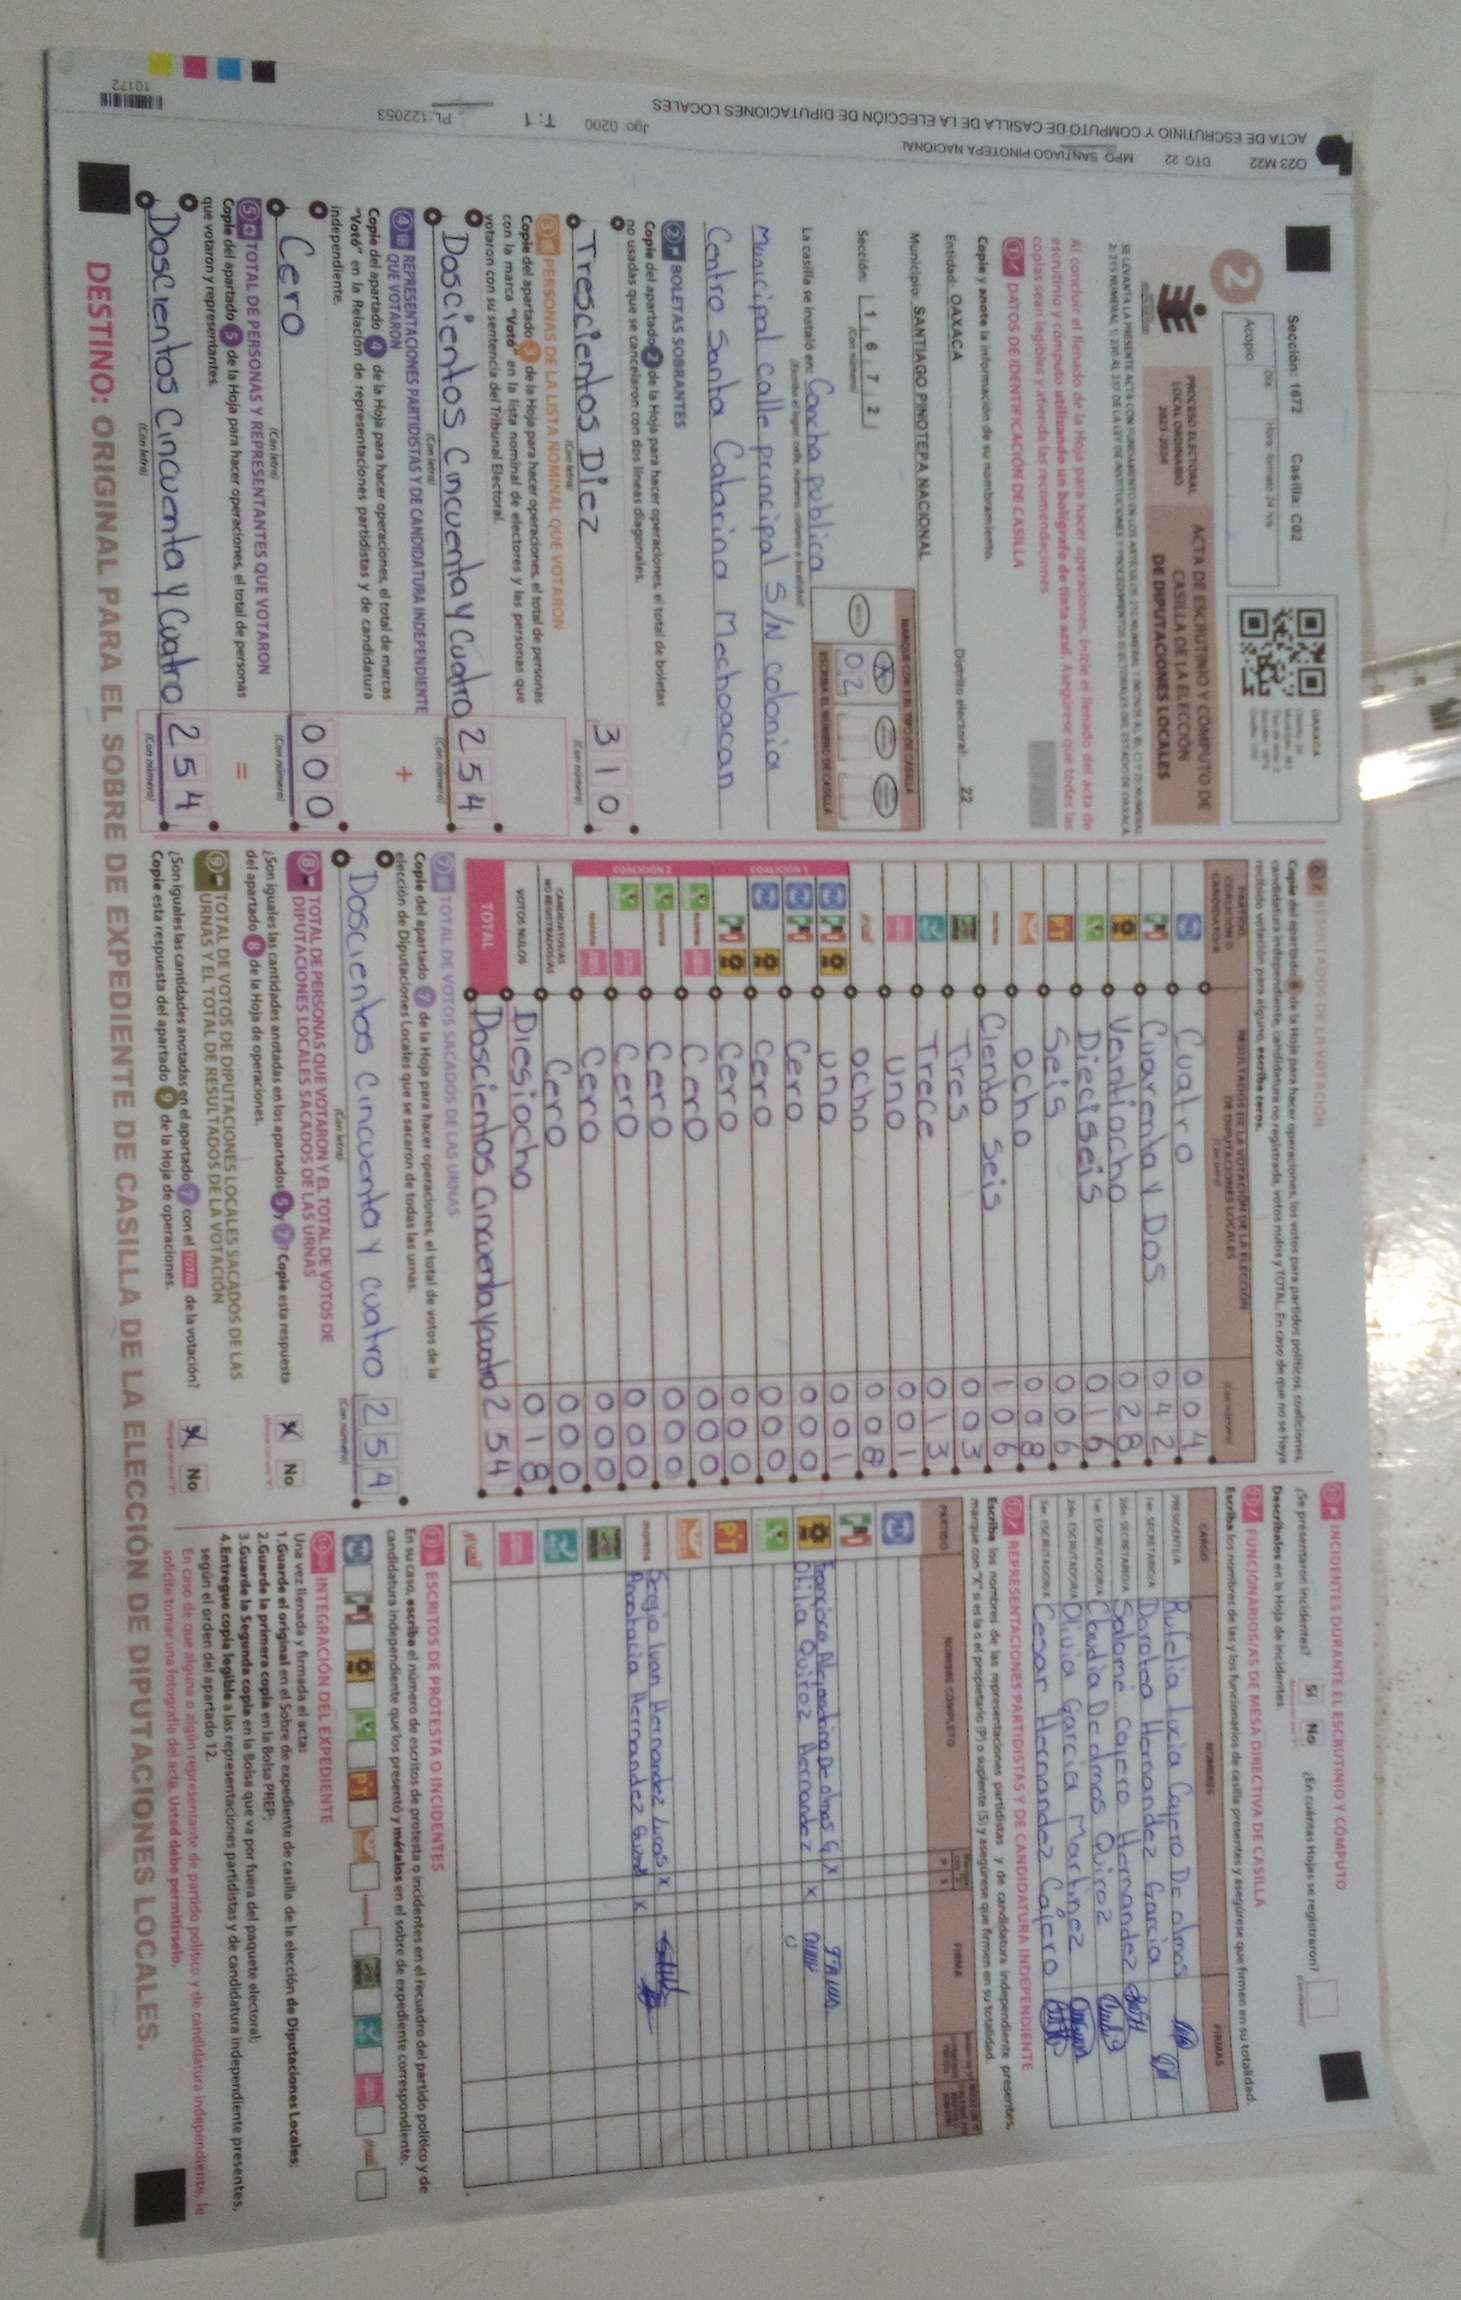 O23 M22 DTO 22 MPO SANTIAGO PINOTEPA NACIONAL
ACTA DE ESCRUTINIO Y CÓMPUTO DE CASILLA DE LA ELECCIÓN DE DIPUTACIONES LOCALES
Jgo: 0200 T: 1 PL:122053
10172
Sección: 1672 Casilla: C02
OAXACA
2
Acopio
Día Hora formato 24 hrs
PROCESO ELECTORAL
LOCAL ORDINARIO
2023-2024
ACTA DE ESCRUTINIO Y CÓMPUTO DE
CASILLA DE LA ELECCIÓN
DE DIPUTACIONES LOCALES
Al concluir el llenado de la Hoja para hacer operaciones, inicie el llenado del acta de
escrutinio y cómputo utilizando un bolígrafo de tinta azul. Asegúrese que todas las
copias sean legibles y atienda las recomendaciones.
1 DATOS DE IDENTIFICACIÓN DE CASILLA
Copie y anote la información de su nombramiento.
Entidad: OAXACA Distrito electoral: 22
Municipio: SANTIAGO PINOTEPA NACIONAL
Sección: 1 6 7 2
(Con número)
MARQUE CON X EL TIPO DE CASILLA
ESCRIBA EL NÚMERO DE CASILLA
02
La casilla se instaló en: Cancha publica
Municipal calle principal S/N colonia
Centro Santa Catarina Mechoacan
2 BOLETAS SOBRANTES
Copie del apartado 2 de la Hoja para hacer operaciones, el total de boletas
no usadas que se cancelaron con dos líneas diagonales.
Trescientos Diez 310
(Con letra) (Con número)
3 PERSONAS DE LA LISTA NOMINAL QUE VOTARON
Copie del apartado 3 de la Hoja para hacer operaciones, el total de personas
con la marca "Votó" en la lista nominal de electores y las personas que
votaron con su sentencia del Tribunal Electoral.
Doscientos Cincuenta y Cuatro 254
(Con letra) (Con número)
4 REPRESENTACIONES PARTIDISTAS Y DE CANDIDATURA INDEPENDIENTE
QUE VOTARON
+
Copie del apartado 4 de la Hoja para hacer operaciones, el total de marcas
"Votó" en la Relación de representaciones partidistas y de candidatura
independiente.
Cero 000
(Con letra) (Con número)
5 TOTAL DE PERSONAS Y REPRESENTANTES QUE VOTARON
=
Copie del apartado 5 de la Hoja para hacer operaciones, el total de personas
que votaron y representantes.
Doscientos Cincuenta y Cuatro 254
(Con letra) (Con número)
6 RESULTADOS DE LA VOTACIÓN
Copie del apartado 6 de la Hoja para hacer operaciones, los votos para partidos políticos, coaliciones,
candidatura independiente, candidatura no registrada, votos nulos y TOTAL. En caso de que no se haya
recibido votación para alguno, escriba ceros.
PARTIDO, COALICIÓN O CANDIDATURA
RESULTADOS DE LA VOTACIÓN DE LA ELECCIÓN
DE DIPUTACIONES LOCALES
(Con letra) (Con número)
Cuatro 004
Cuarenta y Dos 042
Veintiocho 028
Dieciseis 016
PT Seis 006
Ocho 008
morena Ciento Seis 106
Tres 003
Trece 013
Uno 001
Ocho 008
COALICIÓN 1
Uno 001
Cero 000
Cero 000
Cero 000
COALICIÓN 2
Cero 000
Cero 000
Cero 000
Cero 000
CANDIDATOS/AS
NO REGISTRADOS/AS Cero 000
VOTOS NULOS Diesiocho 018
TOTAL Doscientos Cincuenta y cuatro 254
7 TOTAL DE VOTOS SACADOS DE LAS URNAS
Copie del apartado 7 de la Hoja para hacer operaciones, el total de votos de la
elección de Diputaciones Locales que se sacaron de todas las urnas.
Doscientos Cincuenta y cuatro 254
(Con letra) (Con número)
8 TOTAL DE PERSONAS QUE VOTARON Y EL TOTAL DE VOTOS DE
DIPUTACIONES LOCALES SACADOS DE LAS URNAS
¿Son iguales las cantidades anotadas en los apartados 5 y 7? Copie esta respuesta
del apartado 8 de la Hoja de operaciones.
X No
9 TOTAL DE VOTOS DE DIPUTACIONES LOCALES SACADOS DE LAS
URNAS Y EL TOTAL DE RESULTADOS DE LA VOTACIÓN
¿Son iguales las cantidades anotadas en el apartado 7 con el TOTAL de la votación?
Copie esta respuesta del apartado 9 de la Hoja de operaciones.
X No
10 INCIDENTES DURANTE EL ESCRUTINIO Y CÓMPUTO
¿Se presentaron incidentes? Sí No ¿En cuántas Hojas se registraron?
Descríbalos en la Hoja de incidentes.
11 FUNCIONARIOS/AS DE MESA DIRECTIVA DE CASILLA
Escriba los nombres de las y los funcionarios de casilla presentes y asegúrese que firmen en su totalidad.
CARGO NOMBRES FIRMAS
PRESIDENTE/A Rufelia Lucia Cajero De olmos
1er. SECRETARIO/A Dorotea Hernandez Garcia
2do. SECRETARIO/A Salomé cajero Hernandez
1er. ESCRUTADOR/A Claudia De olmos Quiroz
2do. ESCRUTADOR/A Olivia Garcia Martinez
3er. ESCRUTADOR/A Cesar Hernandez Cajero
12 REPRESENTACIONES PARTIDISTAS Y DE CANDIDATURA INDEPENDIENTE
Escriba los nombres de las representaciones partidistas y de candidatura independiente presentes,
marque con "X" si es la o el propietario (P) o suplente (S) y asegúrese que firmen en su totalidad.
PARTIDO NOMBRE COMPLETO P S FIRMA
Francisca Alejandrina De olmos G X
Otilia Quiroz Hernandez X
PT
morena Sergio Ivan Hernandez Lucas X
Anastacia Hernandez X
13 ESCRITOS DE PROTESTA O INCIDENTES
En su caso, escriba el número de escritos de protesta o incidentes en el recuadro del partido político y de
candidatura independiente que los presentó y métalos en el sobre de expediente correspondiente.
14 INTEGRACIÓN DEL EXPEDIENTE
Una vez llenada y firmada el acta:
1.Guarde el original en el Sobre de expediente de casilla de la elección de Diputaciones Locales;
2.Guarde la primera copia en la Bolsa PREP;
3.Guarde la Segunda copia en la Bolsa que va por fuera del paquete electoral;
4.Entregue copia legible a las representaciones partidistas y de candidatura independiente presentes,
según el orden del apartado 12.
En caso de que alguna o algún representante de partido político y de candidatura independiente, le
solicite tomar una fotografía del acta, Usted debe permitírselo.
DESTINO: ORIGINAL PARA EL SOBRE DE EXPEDIENTE DE CASILLA DE LA ELECCIÓN DE DIPUTACIONES LOCALES.